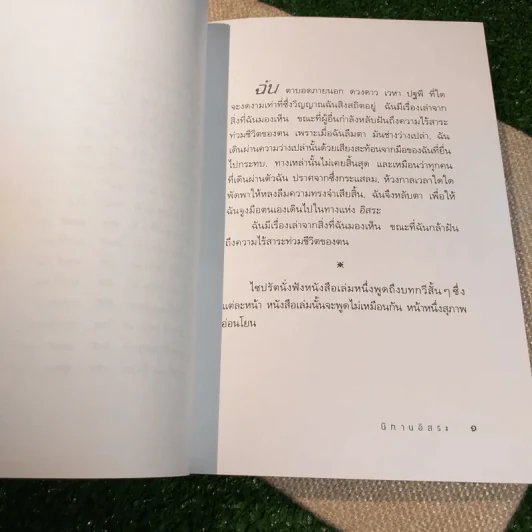 ฉัน ตาบอดภายนอก ดวงดาว เวหา ปฐพี ที่ใด
จะงดงามเท่าที่ซึ่งวิญญาณฉันสิงสถิตอยู่ ฉันมีเรื่องเล่าจาก
สิ่งที่ฉันมองเห็น ขณะที่ผู้อื่นกำลังหลับฝันถึงความไร้สาระ
ท่วมชีวิตของตน เพราะเมื่อฉันลืมตา มันช่างว่างเปล่า, ฉัน
เดินผ่านความว่างเปล่านั้นด้วยเสียงสะท้อนจากมือของฉันที่ยื่น
ไปกระทบ, ทางเหล่านั้นไม่เคยสิ้นสุด และเหมือนว่าทุกคน
ที่เดินผ่านตัวฉัน ปราศจากซึ่งกระแสลม, ห้วงกาลเวลาใดใด
พัดพาให้หลงลืมความทรงจำเสียสิ้น, ฉันจึงหลับตา เพื่อให้
ฉันจูงมือตนเองเดินไปในทางแห่ง อิสระ
ฉันมีเรื่องเล่าจากสิ่งที่ฉันมองเห็น ขณะที่ฉันกล้าฝัน
ถึงความไร้สาระท่วมชีวิตของตน
※
ไซปรัตนั่งฟังหนังสือเล่มหนึ่งพูดถึงบทกวีสั้น ๆ ซึ่ง
แต่ละหน้า หนังสือเล่มนั้นจะพูดไม่เหมือนกัน หน้าหนึ่งสุภาพ
อ่อนโยน
นิทานอิสระ ๑